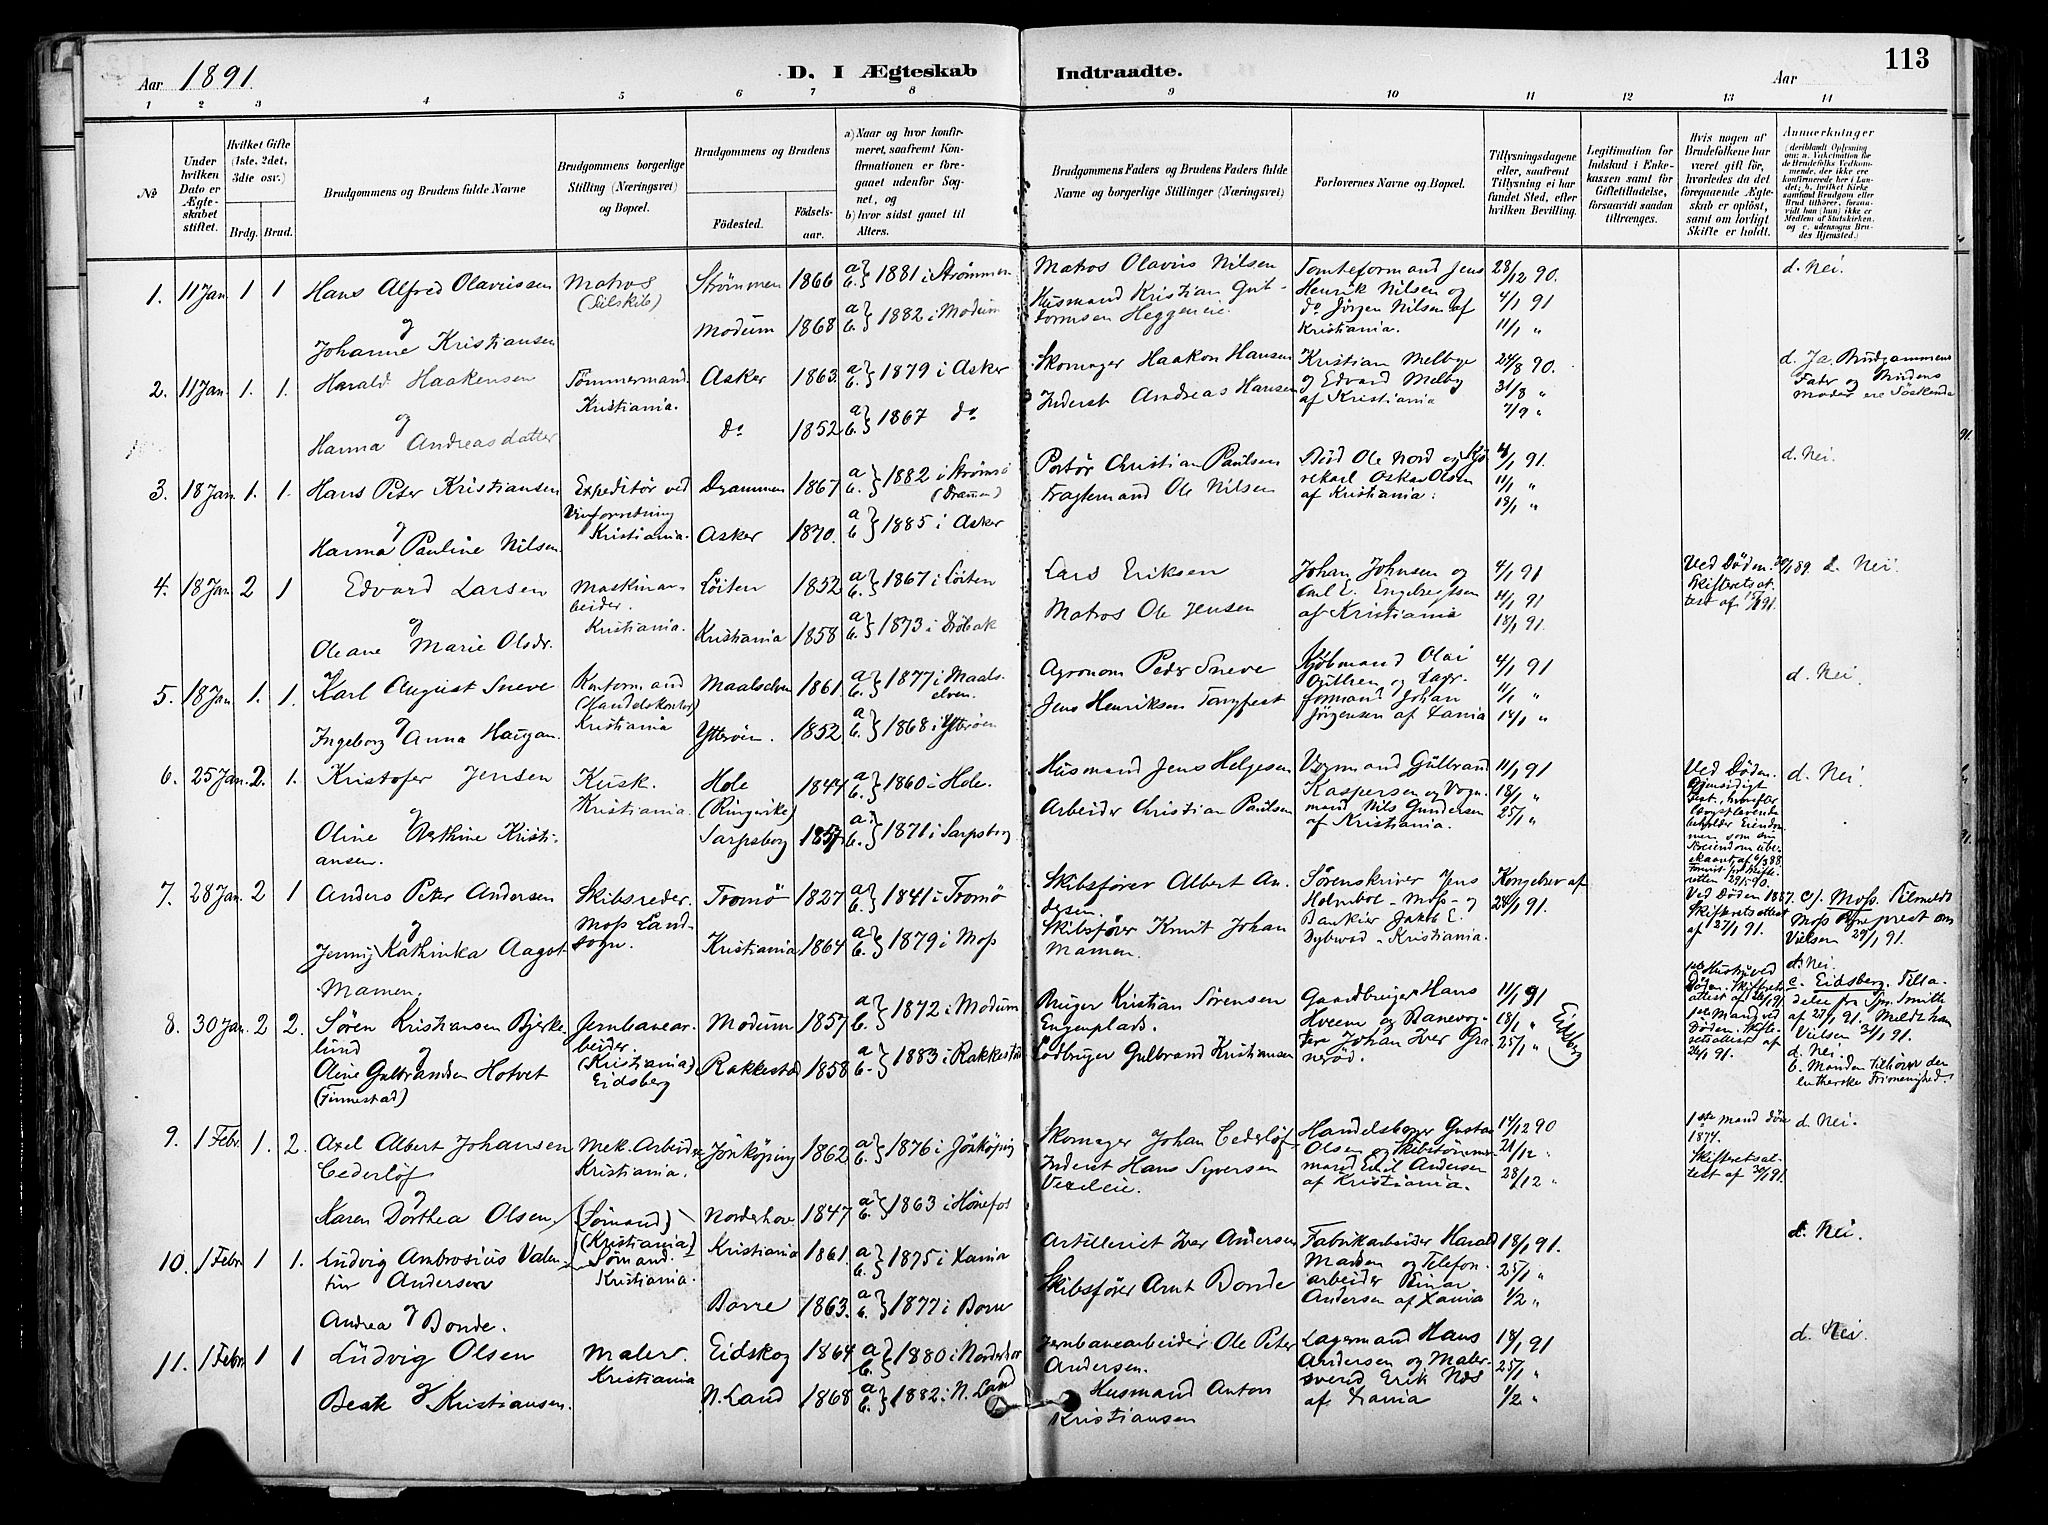 113
Aar 1891.
D. I Ægteskab Indtraadte.
Aar
1 2 3 4 5 6 7 8 9 10 11 12 13 14
No
Under hvilken Dato er Ægteskabet stiftet.
Hvilket Gifte (1ste, 2det, 3die osv.)
Brdg. Brud.
Brudgommens og Brudens fulde Navne
Brudgommens borgerlige Stilling (Næringsvei) og Bopæl.
Brudgommens og Brudens
Födested. Födselsaar.
a) Naar og hvor konfirmeret, saafremt Konfirmationen er foregaaet udenfor Sognet, og
b) hvor sidst gaaet til Alters.
Brudgommens Faders og Brudens Faders fulde Navne og borgerlige Stillinger (Næringsvei)
Forlovernes Navne og Bopæl.
Tillysningsdagene eller, saafremt Tillysning ei har fundet Sted, efter hvilken Bevilling.
Legitimation for Indskud i Enkekassen samt for Giftetilladelse, forsaavidt saadan tiltrænges.
Hvis nogen af Brudefolkene har været gift før, hvorledes du det foregaaende Ægteskab er oplöst, samt om lovligt Skifte er holdt.
Anmærkninger (deriblandt Oplysning om: a. Vakcination for de Brudefolks Vedkommende, der ikke ere konfirmerede her i Landet; b. hvilket Kirkesamfund Brudgom eller Brud tilhörer, forsaavidt han (hun) ikke er Medlem af Statskirken, og c. udensogns Brudes Hjemsted.)
1. 11 Jan. 1 1 Hans Alfred Olaviussen
og
Johanne Kristiansen
Matros (Seilskib)
Strømmen 1866 a b } 1881 i Strømmen
Modum 1868 a b } 1882 i Modum
Matros Olavius Nilsen
Husmand Kristian Guttormsen Heggeneie.
Tomteformand Jens Henrik Nilsen og do Jörgen Nilsen af Kristiania.
28/12 90.
4/1 91
11/1 "
d. Nei.
2. 11 Jan. 1. 1. Harald Haakensen
og
Hanna Andreasdatter
Tømmermand. Kristiania.
Asker 1863. a b } 1879 i Asker
do 1852 a b } 1867 do
Skomager Haakon Hansen
Inderst Andreas Hansen
Kristian Melbye og Edvard Melby af Kristiania
24/8 90.
31/8 "
7/9 "
d. Ja, Brudgommens Fader og Brudens Moder ere Söskende
3. 18 Jan. 1. 1. Hans Peter Kristiansen
og
Hanna Pauline Nilsen
Expeditör ved Vinforretning Kristiania.
Drammen 1867 a b } 1882 i Strømsö (Drammen)
Asker 1870. a b } 1885 i Asker
Portör Christian Paulsen
Fragtemand Ole Nilsen
Bud Ole Nord og Kjörekarl Oskar Olsen af Kristiania.
4/1 91.
11/1 "
18/1 "
d. Nei.
4. 18 Jan. 2 1 Edvard Larsen
og
Oleane Marie Olsdr.
Maskinarbeider. Kristiania.
Löiten 1852 a b } 1867 i Löiten
Kristiania 1858 a b } 1873 i Dröbak
Lars Eriksen
Matros Ole Jensen
Johan Johnsen og Carl E. Engebregtsen af Kristiania
4/1 91
11/1 91
18/1 91.
Ved Døden 89. Skifteretsattest af 91.
d. Nei
5. 18 Jan. 1. 1. Karl August Sneve
og
Ingeborg Anna Haugan.
Kontormand (Handelskontor) Kristiania
Maalselven 1861 a b } 1877 i Maalselven.
Ytterøen. 1852. a b } 1868 i Ytterøen
Agronom Peder Sneve
Jens Henriksen
Kjöbmand Olai og Lagerformand Johan Jørgensen af Xania
4/1 91
11/1 "
18/1 "
d. Nei.
6. 25 Jan. 2. 1. Kristofer Jensen
og
Oline Kristiansen.
Kusk. Kristiania.
Hole (Ringerike) 1844 a b } 1860 i Hole.
Sarpsborg 1857 a b } 1871 i Sarpsborg
Husmand Jens Helgesen
Arbeider Christian Paulsen
Vognmand Gulbrand Kaspersen og Vognmand Nils Gundersen af Kristiania.
11/1 91
18/1 "
25/1 "
Ved Døden. Gjensidigt Test., hvorefter
d. Nei
7. 28 Jan. 2 1 Anders Peter Andersen
og
Jenny Kathinka Aagot Mamen.
Skibsreder. Moss Landsogn.
Tromö 1827 a b } 1841 i Tromö
Kristiania 1864 a b } 1879 i Moss
Skibsfører Albert Andersen.
Skibsfører Knut Johan Mamen.
Sorenskriver Jens Holmboe - Moss - og Bankier Jakob E. Dybwad - Kristiania.
Kongebrev af 24/1 91.
Ved Døden 1887. Skifteretsattest af 27/1 91.
c/ Moss. Tilmeldt Moss Sogneprest om Vielsen 29/1 91.
d. Nei.
8. 30 Jan. 2 2. Søren Kristiansen Bjerkelund
og
Oline Gulbrandsen Hotvet (Finnestad)
Jernbanearbeider. (Kristiania) Eidsberg
Modum 1857 a b } 1872 i Modum
Rakkestad 1858 a b } 1883 i Rakkestad
Bruger Kristian Sörensen Engenplads.
Lodbruger Gulbrand Kristiansen
Gaardbruger Hans Hveem og Banevogter Johan Iver Graneröd.
11/1 91
18/1 "
25/1 "
(Eidsberg)
1ste Hustru ved Døden. Skifteretsattest af 26/1 91. 1ste Mand ved Døden. Skifteretsattest af 26/1 91.
c. Eidsberg. Tilladelse fra Spr. Smith af 27/1 91. Meldt ham Vielsen 31/1 91.
d. Nei.
b. Manden tilhører den lutherske Frimenighed.
9. 1 Febr. 1. 2. Axel Albert Johansen Cederlöf
og
Karen Dorthea Olsen
Mek. Arbeider Kristiania.
(Sømand) (Kristiania)
Jönköping 1862 a b } 1876 i Jönköping
Norderhov. 1847 a b } 1863 i Hønefos
Skomager Johan Cederlöf
Inderst Hans Syversen Vexeleie.
Handelsborger Gustav Olsen og Skibstømmermand Emil Andersen af Kristiania.
14/12 90
21/12 "
28/12 "
1ste mand döde 1874. Skifteretsattest af 30/1 91.
d. Nei.
10. 1 Febr 1 1. Ludvig Ambrosius Valentin Andersen
og
Andrea Bonde.
Sømand. Kristiania.
Kristiania 1861. a b } 1875 i Xania
Borre 1863. a b } 1877 i Borre
Artillerist Iver Andersen
Skibsfører Arnt Bonde
Fabrikarbeider Harald Marden og Telefonarbeider Einar Andersen af Xania
18/1 91.
25/1 "
1/2 "
d. Nei.
11. 1 Febr 1 1 Ludvig Olsen
og
Beate Kristiansen.
Maler. Kristiania
Eidskog 1864 a b } 1880 i Norderhov
N. Land 1868 a b } 1882 i N. Land
Jernbanearbeider Ole Peter Andersen.
Husmand Anton Kristiansen
Lagermand Hans Andersen og Malersvend Erik Næs af Xania
18/1 91
25/1 "
1/2 "
d. Nei.